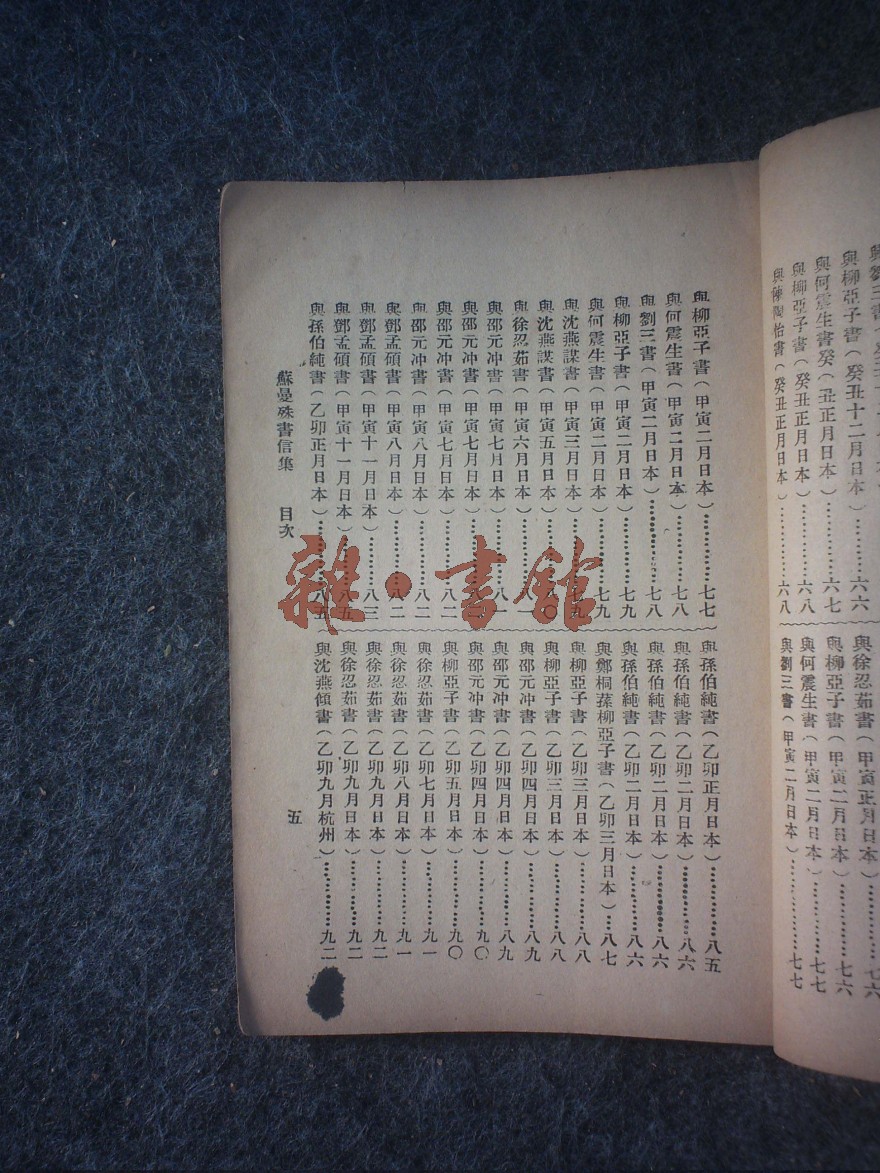 與劉三書
與柳亞子書（癸丑十二月日本）……六六
與何震生書癸（丑正月日本）……六七
與柳亞子書（癸丑正月日本）……六八
與陳陶怡書（癸丑正月日本）……六八
與徐忍茹書（甲寅正月日本）……七六
與柳亞子書（甲寅二月日本）……七六
與何震生書（甲寅二月日本）……七七
與劉三書（甲寅二月日本）……七七
與柳亞子書（甲寅二月日本）……七七
與何震生書（甲寅二月日本）……七八
與劉三書（甲寅二月日本）……七八
與柳亞子書（甲寅二月日本）……七九
與何震生書（甲寅二月日本）……七九
與沈燕謀書（甲寅三月日本）……七九
與沈燕謀書（甲寅五月日本）……〇
與徐忍茹書（甲寅六月日本）……一
與邵元冲書（甲寅七月日本）……八
與邵元冲書（甲寅七月日本）……八二
與邵元冲書（甲寅七月日本）……八二
與邵元冲書（甲寅八月日本）……八二
與鄧孟碩書（甲寅八月日本）……八二
與鄧孟碩書（甲寅十一月日本）……八三
與鄧孟碩書（甲寅十一月日本）……八五
與孫伯純書（乙卯正月日本）……八五
與孫伯純書（乙卯正月日本）……八五
與孫伯純書（乙卯二月日本）……八六
與孫伯純書（乙卯二月日本）……八六
與孫伯純書（乙卯二月日本）……八六
與鄭桐蓀柳亞子書（乙卯三月日本）……八七
與柳亞子書（乙卯三月日本）……八八
與柳亞子書（乙卯三月日本）……八八
與邵元冲書（乙卯四月日本）……八九
與邵元冲書（乙卯四月日本）……八九
與邵元冲書（乙卯四月日本）……九〇
與柳亞子書（乙卯五月日本）……九〇
與徐忍茹書（乙卯七月日本）……九一
與徐忍茹書（乙卯八月日本）……九一
與徐忍茹書（乙卯九月日本）……九二
與徐忍茹書（乙卯九月日本）……九二
與沈燕傾書（乙卯九月杭州）……九二
蘇曼殊書信集　目次
五
雜·書館